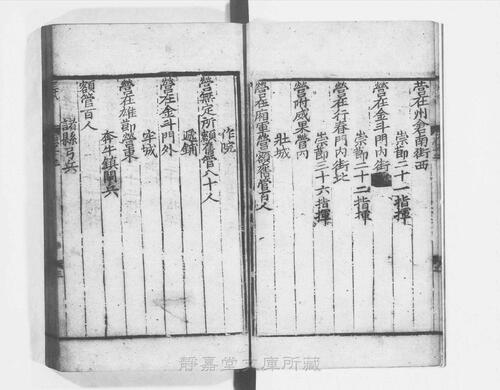 營在州倉南街西
崇節二十一指揮
營在金斗門內街
崇節二十二指揮
營在行春門內街北
崇節三十六指揮
營附威果營內
壯城
營在廂軍營額管百人
作院
營無定所額管八十人
遞鋪
營在金斗門外
牢城
營在雄節營東
奔牛鎮開兵
額管百人
諸縣弓兵
靜嘉堂文庫所藏